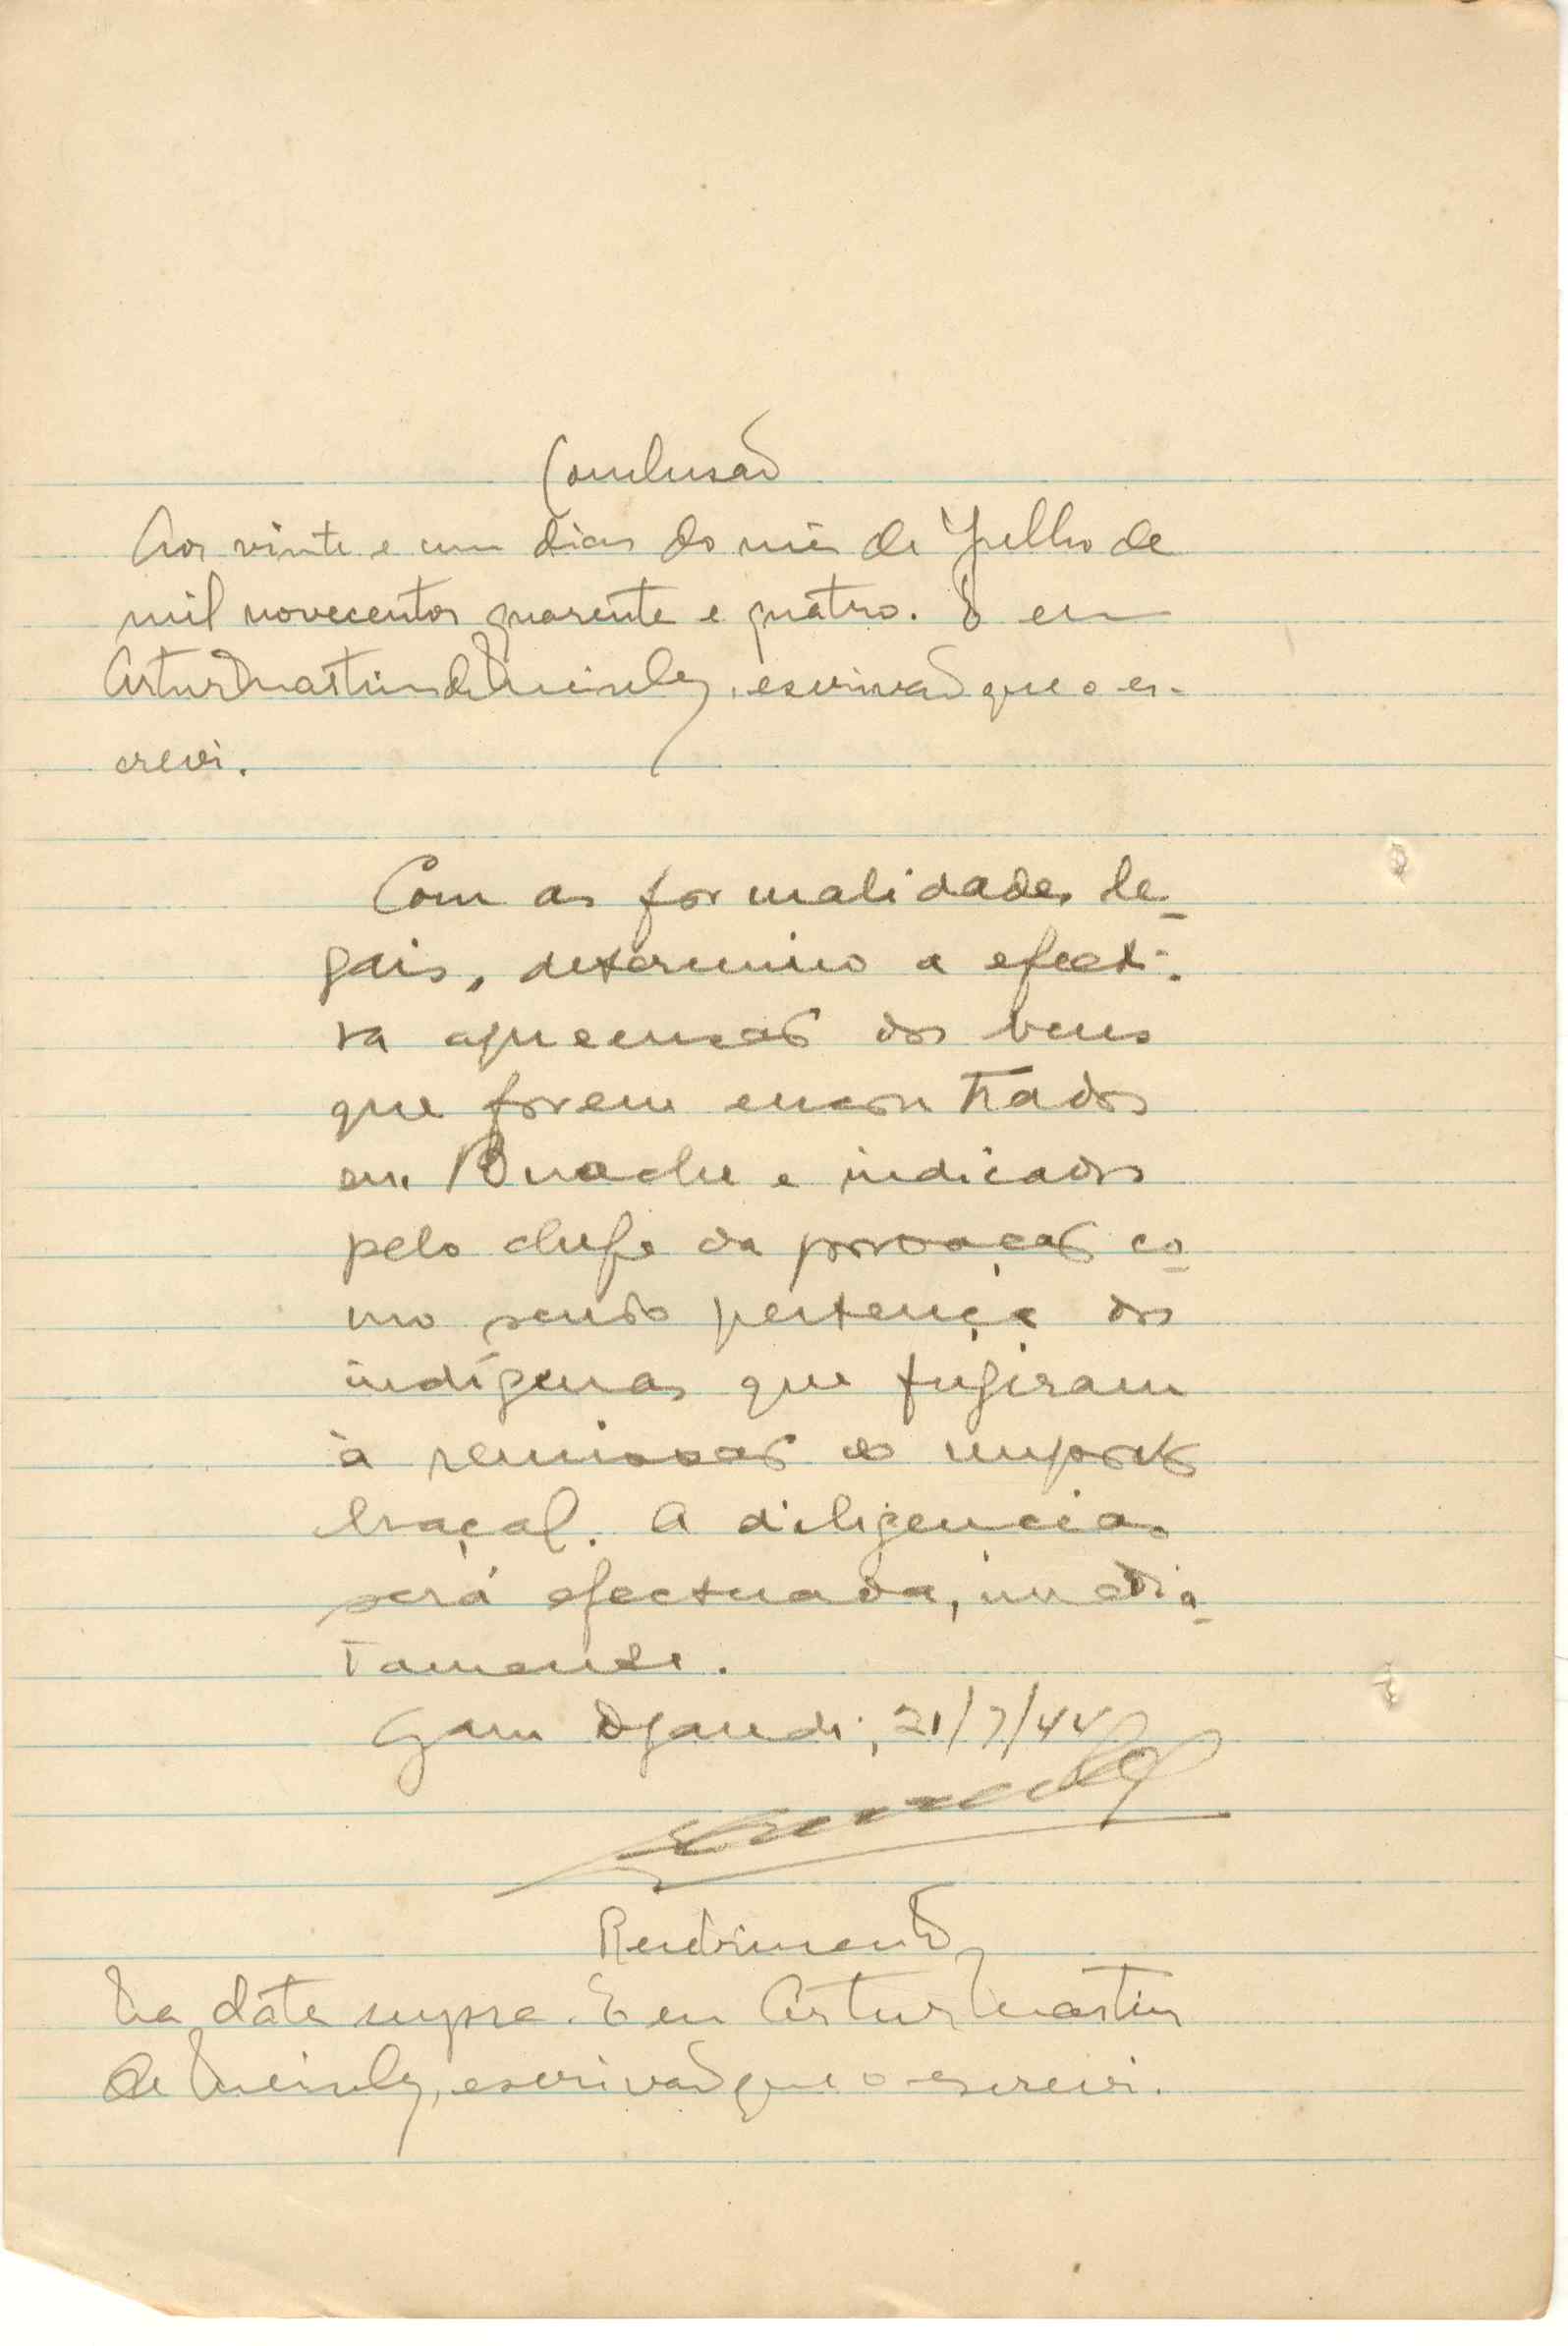 Conclusão
Aos vinte e um dias do mês de Julho de
mil novecentos quarenta e quatro. E eu
Artur Martins de Meireles, escrivão que o es-
crevi.
Com as formalidades le-
gais, determino a efecti-
va apreensão dos bens
que forem encontrados
em Buache e indicados
pelo chefe da povoação co-
mo sendo pertença dos
indígenas que fugiram
à remissão do imposto
braçal. A diligencia
será efectuada, imedia-
tamente.
Gam Djandi, 21/7/44
Recebimento
Na data supra. E eu Artur Martins
de Meireles, escrivão que o escrevi.